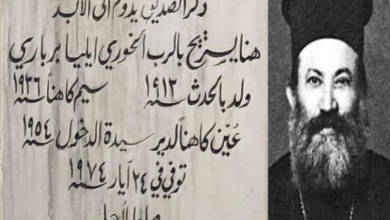 ذكر الصديق يدوم الى الأبد
هنا يستريح بالرب الخوري ايليا برباري
ولد بالحدث سنة ١٩١٣ سيم كاهناً سنة ١٩٣٦
عيّن كاهناً لدير سيدة الدخول سنة ١٩٥٤
توفي في ٢٤ أيار سنة ١٩٧٤
صلوا لأجله